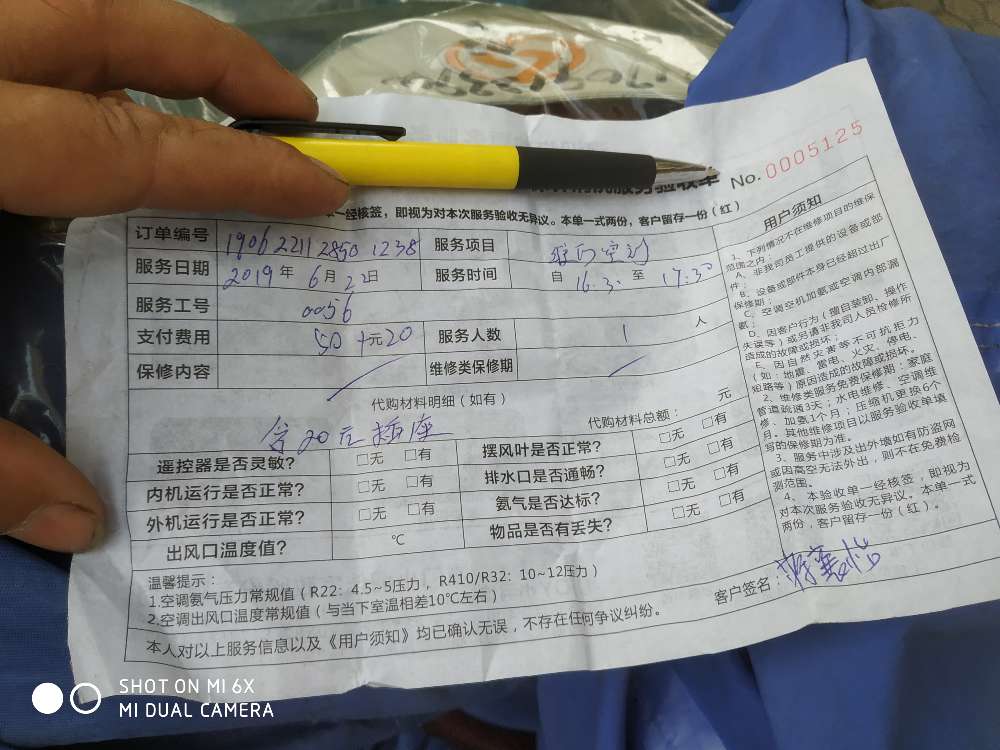 服务验收单 No. 0005125
单一经核签，即视为对本次服务验收无异议。本单一式两份，客户留存一份（红）
订单编号 1906 2211 2850 1238 服务项目
服务日期 2019年6月22日 服务时间 自 16:30 至 17:30
服务工号 0056
支付费用 50+元20 服务人数 1 人
保修内容 维修类保修期
代购材料明细（如有） 代购材料总额： 元
含20元插座
遥控器是否灵敏? □无 □有 摆风叶是否正常? □无 □有
内机运行是否正常? □无 □有 排水口是否通畅? □无 □有
外机运行是否正常? □无 □有 氨气是否达标? □无 □有
出风口温度值? ℃ 物品是否有丢失? □无 □有
温馨提示：
1.空调氨气压力常规值（R22：4.5~5压力，R410/R32：10~12压力）
2.空调出风口温度常规值（与当下室温相差10℃左右）
客户签名：
本人对以上服务信息以及《用户须知》均已确认无误，不存在任何争议纠纷。
用户须知
1、下列情况不在维修项目的维保
范围之内：
A、非我司员工提供的设备或部
件；
B、设备或部件本身已经超过出厂
保修期；
C、空调空机加氨或空调内部漏
氨；
D、因客户行为（擅自装卸、操作
失误等）或另请非我司人员检修所
造成的故障或损坏；
E、因自然灾害等不可抗拒力
（如：地震、雷电、火灾、停电、
短路等）原因造成的故障或损坏。
2、维修类服务免费保修期：家庭
管道疏通3天；水电维修、空调维
修、加氨1个月；压缩机更换6个
月。其他维修项目以服务验收单填
写的保修期为准。
3、服务中涉及出外墙如有防盗网
或因高空无法外出，则不在免费检
测范围。
4、本验收单一经核签，即视为
对本次服务验收无异议。本单一式
两份，客户留存一份（红）。
SHOT ON MI 6X
MI DUAL CAMERA